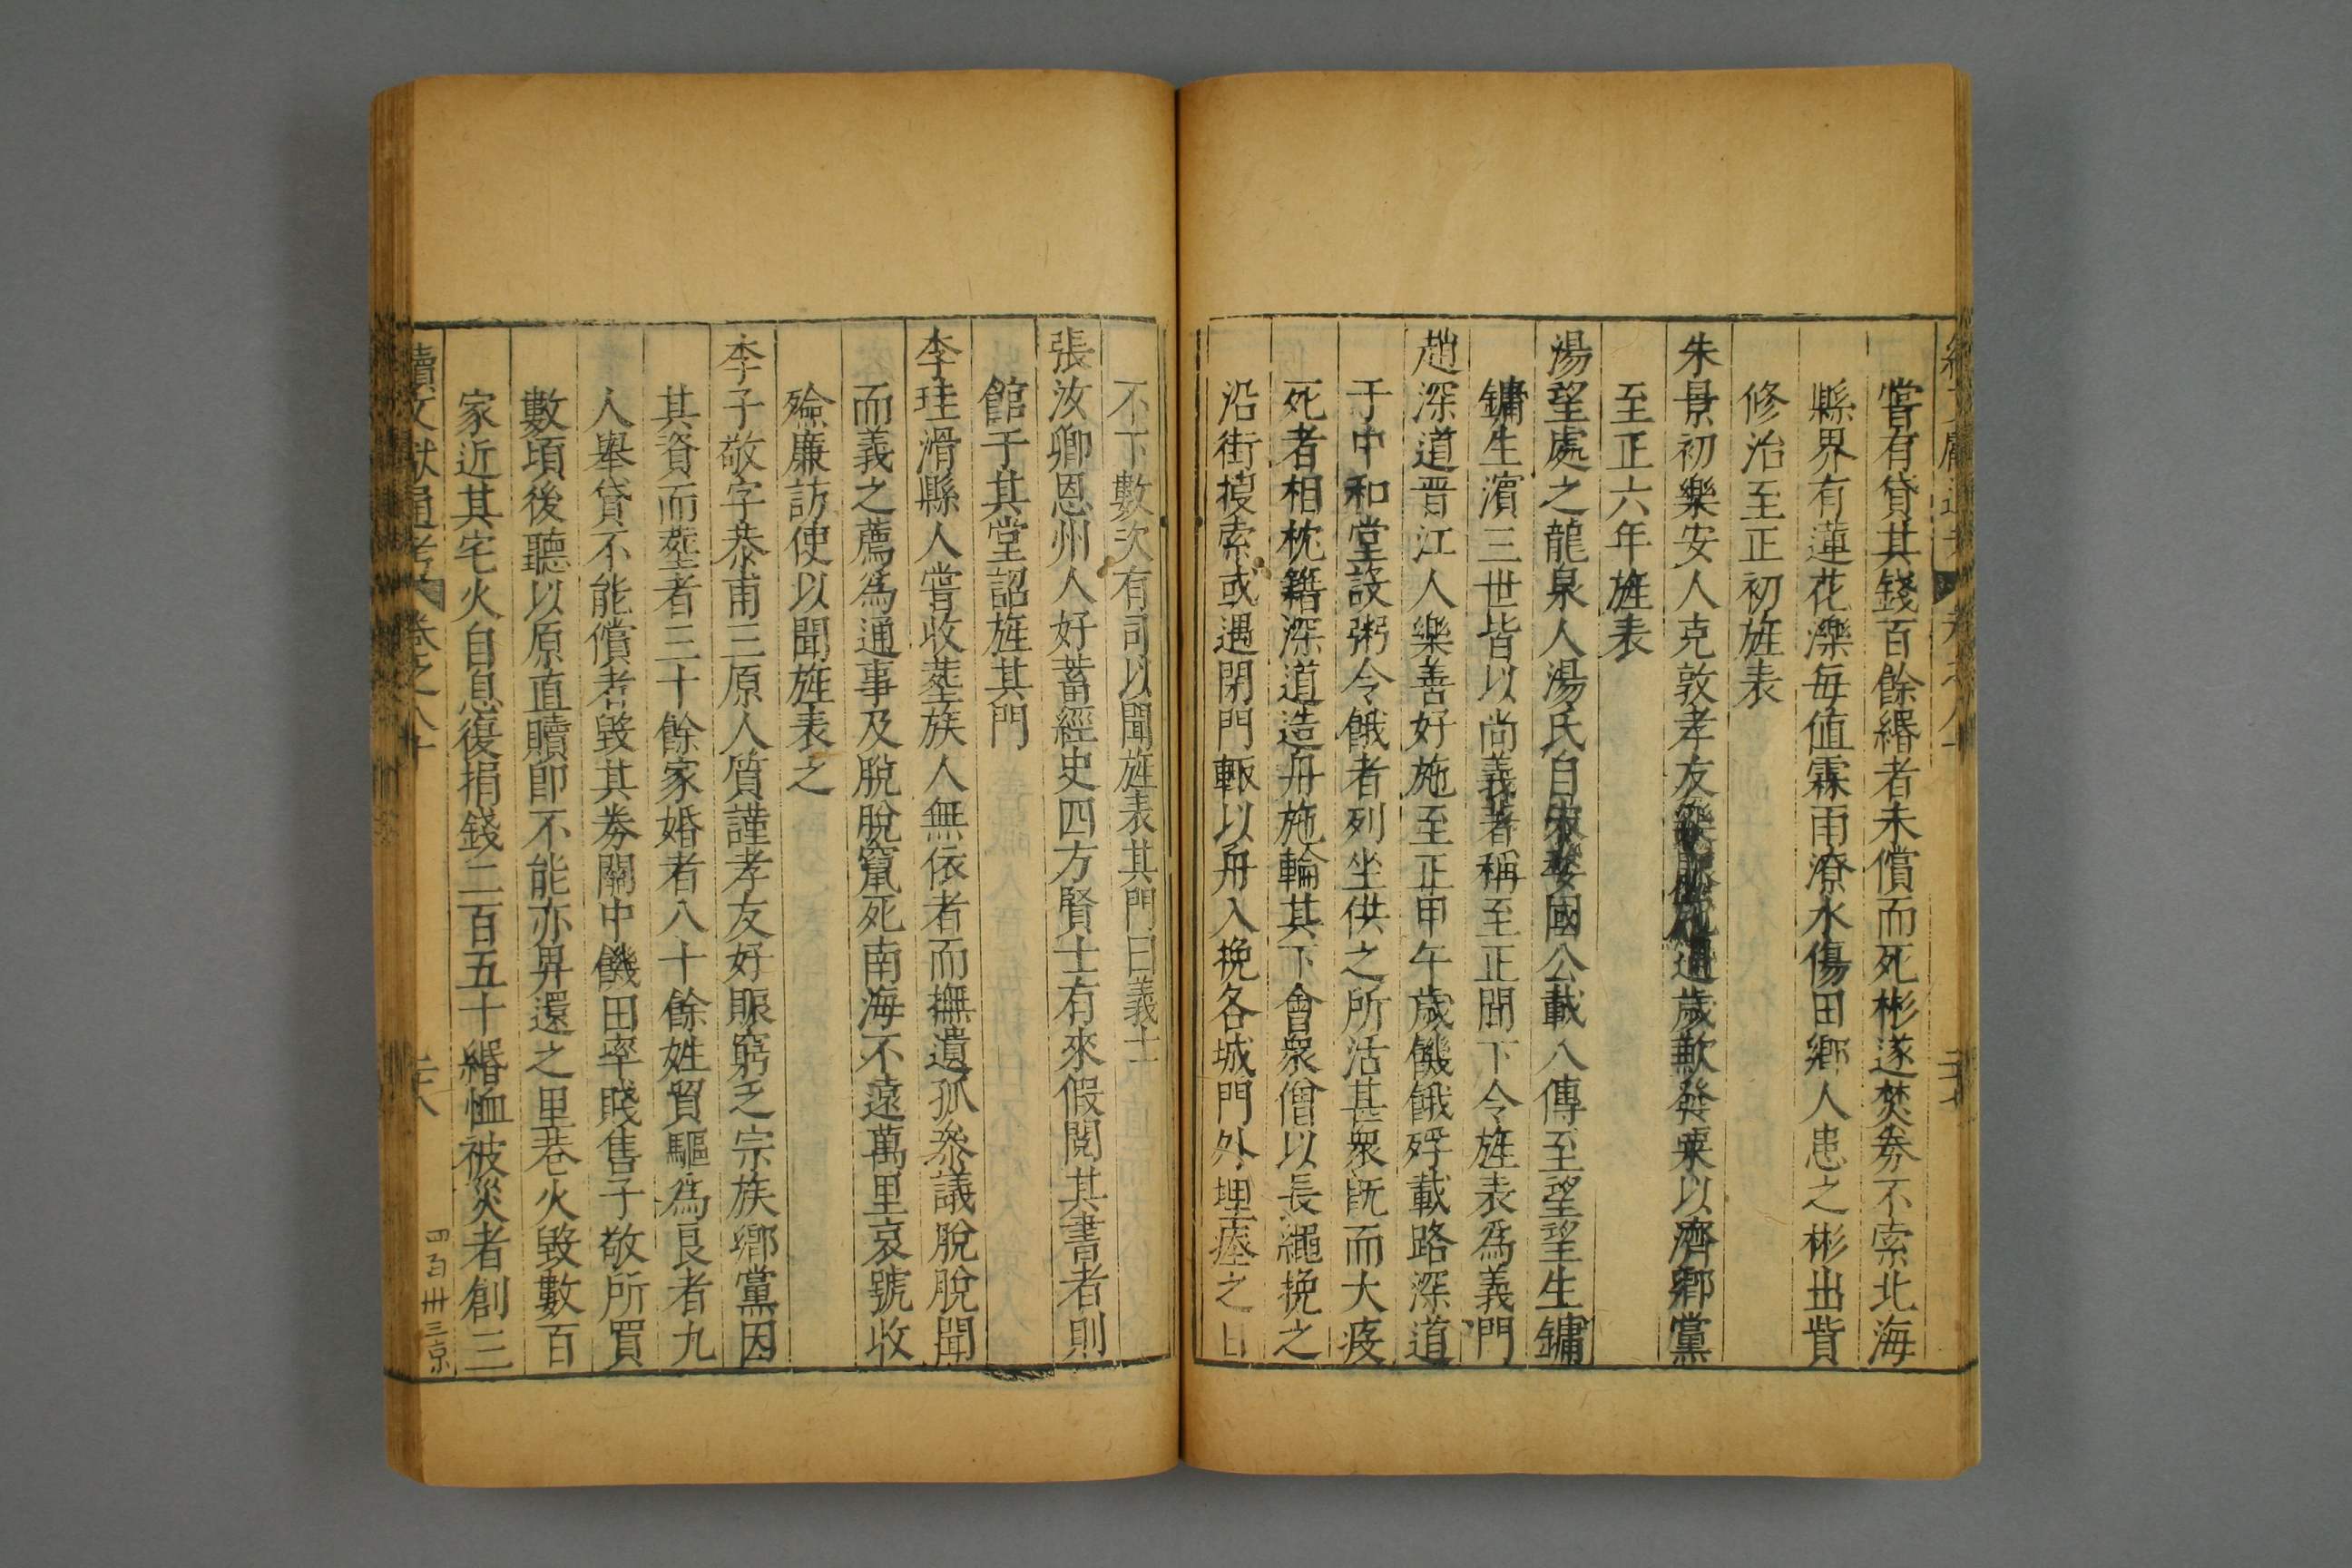 嘗有貸其錢百餘緡者未償而死彬遂焚劵不索北海
縣界有蓮花濼每值霖雨潦水傷田鄉人患之彬出貲
修治至正初旌表
朱景初樂安人克敦孝友遇歲歉發粟以濟鄉黨
至正六年旌表
湯望處之龍泉人湯氏自國公載八傳至望望生鏞
鏞生濱三世皆以尚義著稱至正間下令旌表爲義門
趙深道晋江人樂善好施至正甲午歲饑餓殍載路深道
于中和堂設粥令餓者列坐供之所活甚衆旣而大疫
死者相枕籍深道造舟施輪其下會衆僧以長繩挽之
沿街搜索或遇閉門輒以舟入挽各城門外埋瘞之日
不下數次有司以聞旌表其門曰義士
張汝卿恩州人好蓄經史四方賢士有來假閱其書者則
館于其堂詔旌其門
李珪滑縣人嘗收塟族人無依者而撫遺孤叅議脫脫聞
而義之薦爲通事及脫脫竄死南海不遠萬里哀號收
殮廉訪使以聞旌表之
李子敬字恭甫三原人質謹孝友好賑窮乏宗族鄉黨因
其資而塟者三十餘家婚者八十餘姓貿驅爲良者九
人舉貸不能償者毀其劵關中饑田率賤售子敬所買
數頃後聽以原直贖卽不能亦畀還之里巷火毀數百
家近其宅火自息復捐錢二百五十緡恤被災者創三
續文獻通考 卷之八十
六
四百卌三京